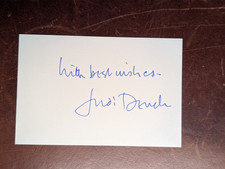 With best wishes -
Judi Dench